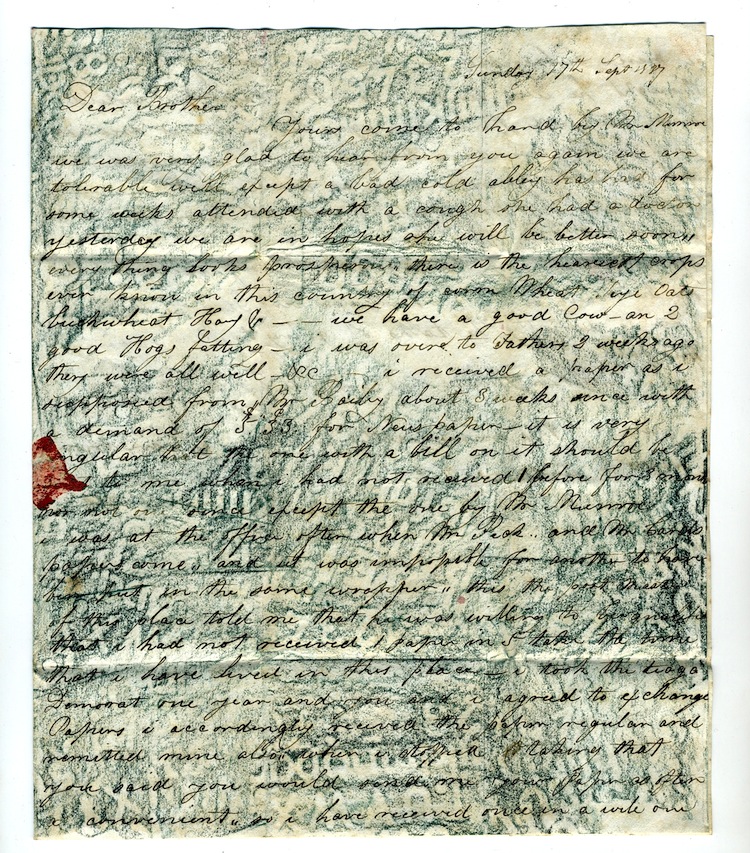 Sunday 17th Sept 1837
Dear Brother
Yours come to hand by Mr Munroe
we was very glad to hear from you again we are
tolerable well except a bad cold abby has had for
some weeks attended with a cough she had a doctor
yesterday we are in hopes she will be better soon
every thing looks prosperous there is the heaviest crops
ever know in this country of corn Wheat rye Oats
buckwheat Hay & — — we have a good Cow — an 2
good Hogs fatting — i was over to Fathers 2 weeks ago
they were all well — &c — i received a paper as i
supposed from Mr about 3 weeks since with
a demand of $ for News paper — it is very
singular that the one with a bill on it should be
to me when i had not received 1 before for
nor not one since except the one by Mr Munroe
i was at the office often when Mr Peck .. and Mr
papers come, and it was impossible for another to have
been put in the same wrapper ,, this the post
of this place told me that he was willing to be
that i had not received 1 paper in 5 take the time
that i have lived in this place — i took the tioga
Democrat one year and you and i agreed to exchange
Papers i accordingly received the paper regular and
remitted mine also when i stopped taking that
you said you would send me your paper as often
a convenient ,, so i have received once in a wile one